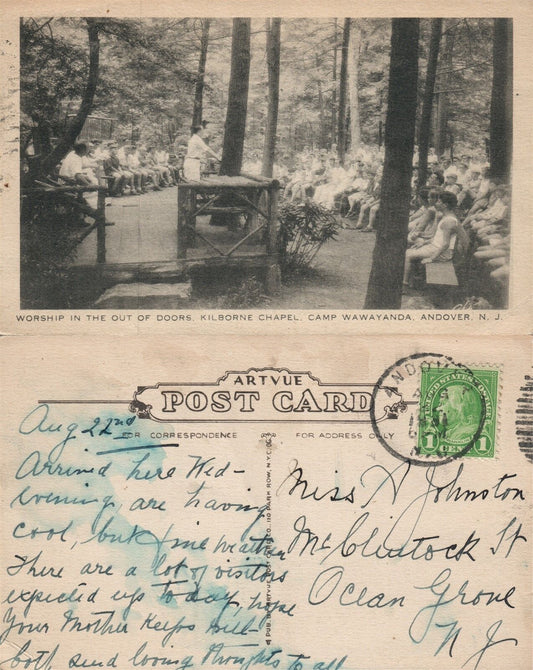 WORSHIP IN THE OUT OF DOORS, KILBORNE CHAPEL, CAMP WAWAYANDA, ANDOVER, N. J.
ARTVUE
POST CARD
FOR CORRESPONDENCE
FOR ADDRESS ONLY
ANDOVER
UNITED STATES POSTAGE
1 CENT 1
Aug 22nd
Arrived here Wed-
evening, are having
cool, but fine weather
There are a lot of visitors
expected up today, hope
Your Mother keeps well
both send loving thoughts to all
PUB. BY ARTVUE POST CARD CO. 225 FIFTH AVE
Miss A Johnston
McClintock St
Ocean Grove
N J